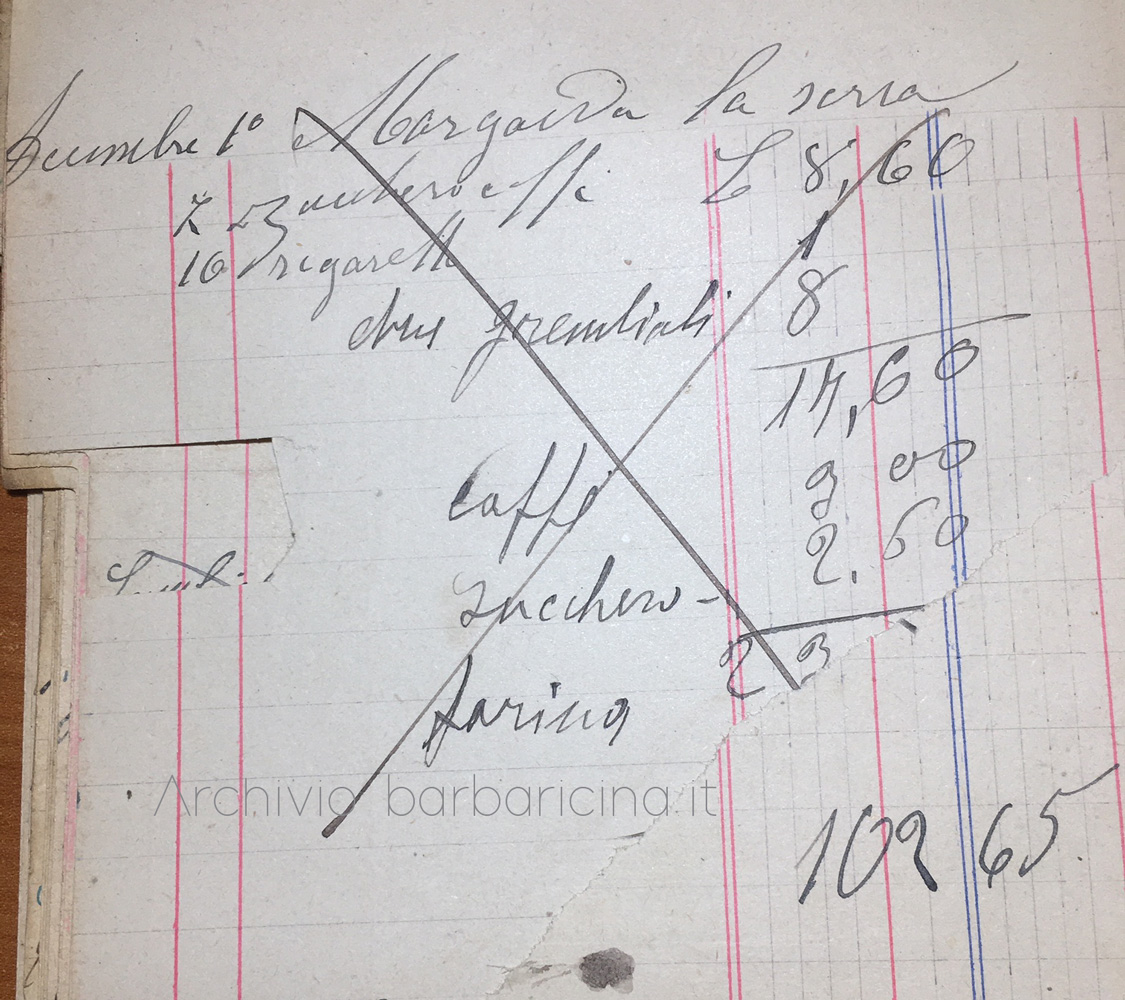 Decembre 1° Margarida la serra
zucchero caffe L 8,60
10 sigarette 1
due grembiali 8
17,60
Caffe 9 00
zucchero - 2.60
farina 2 9
Archivio barbaricina.it
102 65